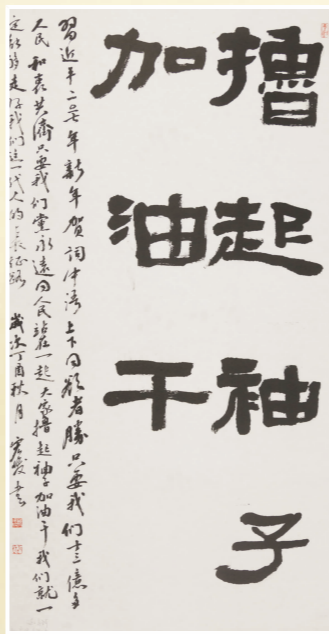 擼起袖子
加油干
習近平二〇一七年新年賀詞中語上下同欲者勝只要我们十三億多
人民和衷共濟只要我们黨永遠同人民站在一起大家擼起袖子加油干我们就一
定能够走好我们這一代人的長征路 歲次丁酉秋月